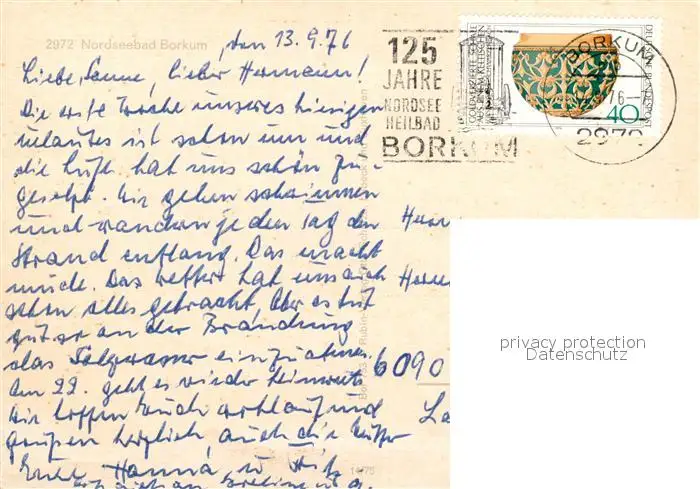 2972 Nordseebad Borkum
den 13.9.76
Liebe Senne, lieber Hermann!
Die erste Woche unseres hiesigen
Urlaubes ist schon um und
die Luft hat uns schön zu-
gesetzt. Wir gehen schwimmen
und wandern jeden Tag den
Strand entlang. Das macht
müde. Das Wetter hat uns auch
schon alles gebracht. Aber es tut
gut so an der Brandung
das Salzwasser einzuatmen.
Am 22. geht es wieder heimwärts
Wir hoffen Euch wohlauf und
grüßen herzlich, auch die Mutter
Eure Hanna u.
125
JAHRE
NORDSEE
HEILBAD
BORKUM
BORKUM
76
2972
DEUTSCHE BUNDESPOST
40
Herrn
6090
privacy protection
Datenschutz
14/75